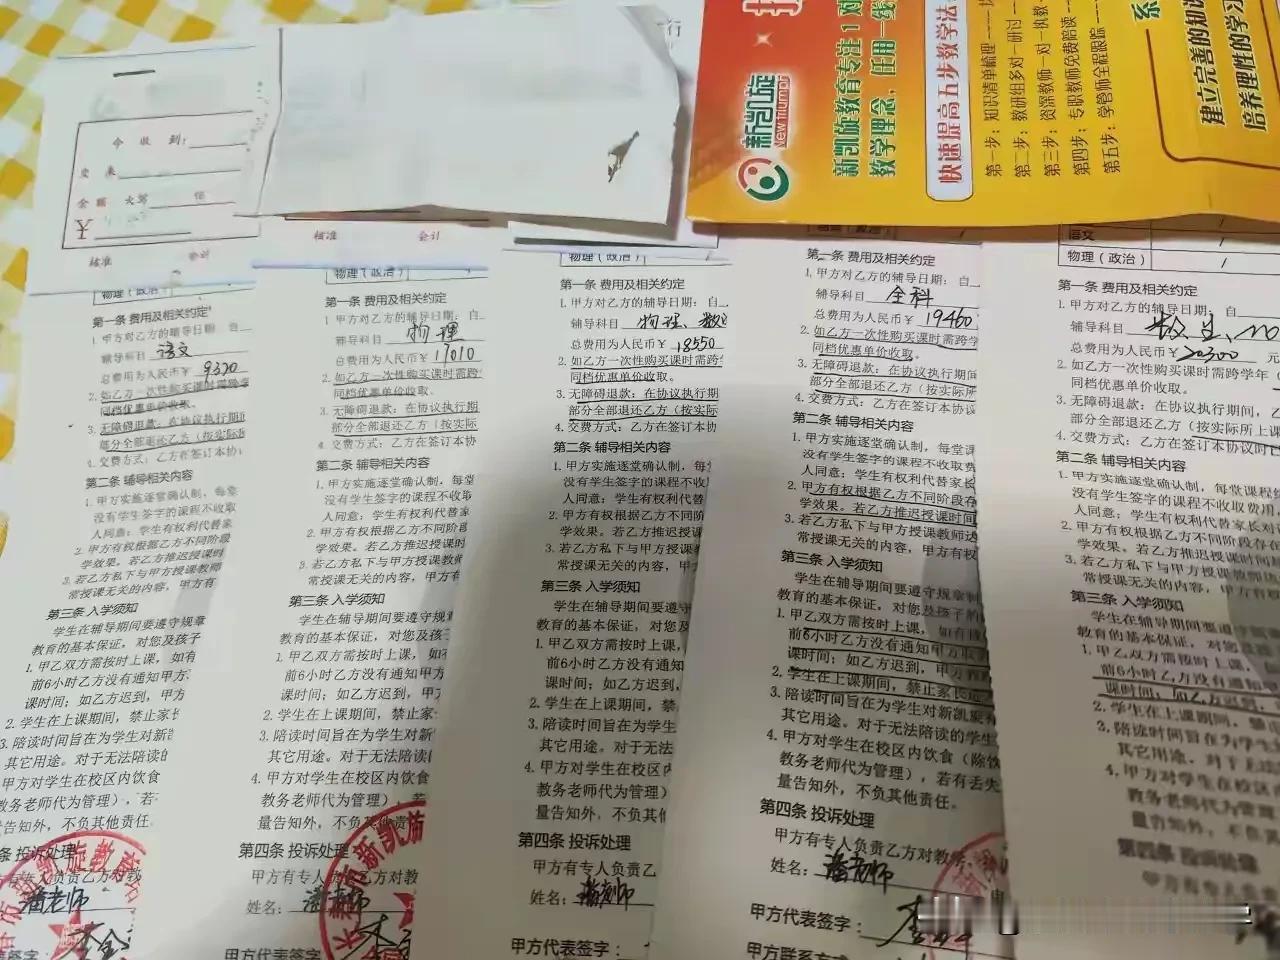 今收到：
交来
金额 大写 佰
￥
核准 会计
新凯旋
New Triumph
新凯旋教育专注1对
教学理念，任用一线
快速提高五步教学法
第一步：知识清单梳理
第二步：教研组多对一研讨
第三步：资深教师一对一执教
第四步：专职教师免费陪读
第五步：学管师全程跟踪
系
建立完善的知识
培养理性的学习
物理（政治）
第一条 费用及相关约定
1. 甲方对乙方的辅导日期 自
辅导科目 语文
总费用为人民币￥ 9320
2. 如乙方一次性购买课时需跨学
同档优惠单价收取。
3. 无障碍退款：在协议执行期
部分全部退还乙方（按实际
4. 交费方式：乙方在签订本协
第二条 辅导相关内容
1. 甲方实施逐堂确认制，每堂
没有学生签字的课程不收取
人同意；学生有权利代替家
2. 甲方有权根据乙方不同阶段
学效果。若乙方推迟授课时
3. 若乙方私下与甲方授课教师
常授课无关的内容，甲方有
第三条 入学须知
学生在辅导期间要遵守规章
教育的基本保证，对您及孩子
1. 甲乙双方需按时上课，如有
前6小时乙方没有通知甲方
课时间；如乙方迟到，甲方
2. 学生在上课期间，禁止家长
3. 陪读时间旨在为学生对新凯
其它用途。对于无法陪读的
4. 甲方对学生在校区内饮食
教务老师代为管理），若
量告知外，不负其他责任。
条 投诉处理
方有专人负责乙方对教
潘老师
核准 会计
物理（政治）
第一条 费用及相关约定
1 甲方对乙方的辅导日期：自
辅导科目 物理
总费用为人民币￥ 17010
2. 如乙方一次性购买课时需跨学
同档优惠单价收取。
3. 无障碍退款：在协议执行期
部分全部退还乙方（按实际
4. 交费方式：乙方在签订本协
第二条 辅导相关内容
1. 甲方实施逐堂确认制，每堂
没有学生签字的课程不收取
人同意；学生有权利代替家
2. 甲方有权根据乙方不同阶段
学效果。若乙方推迟授课时
3. 若乙方私下与甲方授课教师
常授课无关的内容，甲方有
第三条 入学须知
学生在辅导期间要遵守规章
教育的基本保证，对您及孩子
1. 甲乙双方需按时上课，如有
前6小时乙方没有通知甲方
课时间；如乙方迟到，甲方
2. 学生在上课期间，禁止家
3. 陪读时间旨在为学生对新
其它用途。对于无法陪读的
4. 甲方对学生在校区内饮食
教务老师代为管理），若
量告知外，不负其他责
第四条 投诉处理
甲方有专人负责乙方对教
姓名：潘老师
甲方代表签字：
物理（政治）
第一条 费用及相关约定
1. 甲方对乙方的辅导日期：自
辅导科目 物理、数
总费用为人民币￥ 18550
2. 如乙方一次性购买课时需跨
同档优惠单价收取。
3. 无障碍退款：在协议执行期
部分全部退还乙方（按实际
4. 交费方式：乙方在签订本协
第二条 辅导相关内容
1. 甲方实施逐堂确认制，每
没有学生签字的课程不收取
人同意；学生有权利代替
2. 甲方有权根据乙方不同阶
学效果。若乙方推迟授课
3. 若乙方私下与甲方授课教
常授课无关的内容，甲方
第三条 入学须知
学生在辅导期间要遵守规
教育的基本保证，对您及
1. 甲乙双方需按时上课，
前6小时乙方没有通知甲
课时间；如乙方迟到，
2. 学生在上课期间，禁止
3. 陪读时间旨在为学生
其它用途。对于无法
4. 甲方对学生在校区内
教务老师代为管理
量告知外，不负其
第四条 投诉处理
甲方有专人负责乙
姓名：潘老师
甲方代表签字：
第一条 费用及相关约定
1. 甲方对乙方的辅导日期：自
辅导科目 全科
总费用为人民币￥ 19460
2. 如乙方一次性购买课时需跨学
同档优惠单价收取。
3. 无障碍退款：在协议执行期间
部分全部退还乙方（按实际
4. 交费方式：乙方在签订本协议
第二条 辅导相关内容
1. 甲方实施逐堂确认制，每堂课
没有学生签字的课程不收取费
人同意；学生有权利代替家长
2. 甲方有权根据乙方不同阶段存
学效果。若乙方推迟授课时间
3. 若乙方私下与甲方授课教师达
常授课无关的内容，甲方有权
第三条 入学须知
学生在辅导期间要遵守规章制
教育的基本保证，对您及孩子的
1. 甲乙双方需按时上课，如有
前6小时乙方没有通知甲方
课时间；如乙方迟到，甲方
2. 学生在上课期间，禁止家长
3. 陪读时间旨在为学生对新凯旋
其它用途。对于无法陪读的学生
4. 甲方对学生在校区内饮食（除饮
教务老师代为管理），若有丢失
量告知外，不负其他责任。
第四条 投诉处理
甲方有专人负责乙方对教
姓名：潘老师
甲方代表签字：
甲方联系方式
语文
物理（政治） /
第一条 费用及相关约定
1. 甲方对乙方的辅导日期：自
辅导科目
总费用为人民币￥ 20300 元
2. 如乙方一次性购买课时需跨学年（
同档优惠单价收取。
3. 无障碍退款：在协议执行期间，乙
部分全部退还乙方（按实际所上课
4. 交费方式：乙方在签订本协议时
第二条 辅导相关内容
1. 甲方实施逐堂确认制，每堂课程
没有学生签字的课程不收取费用
人同意；学生有权利代替家长对
2. 甲方有权根据乙方不同阶段存在
学效果。若乙方推迟授课时间
3. 若乙方私下与甲方授课教师
常授课无关的内容，甲方有权
第三条 入学须知
学生在辅导期间要遵
教育的基本保证，对您及孩
1. 甲乙双方需按时上课，
前6小时乙方没有通知
课时间；如乙方迟到，
2. 学生在上课期间，禁止
3. 陪读时间旨在为学生
其它用途。对于无法
4. 甲方对学生在校区
教务老师代为管理
量告知外，不负其
第四条 投诉处理
甲方有专人负责乙